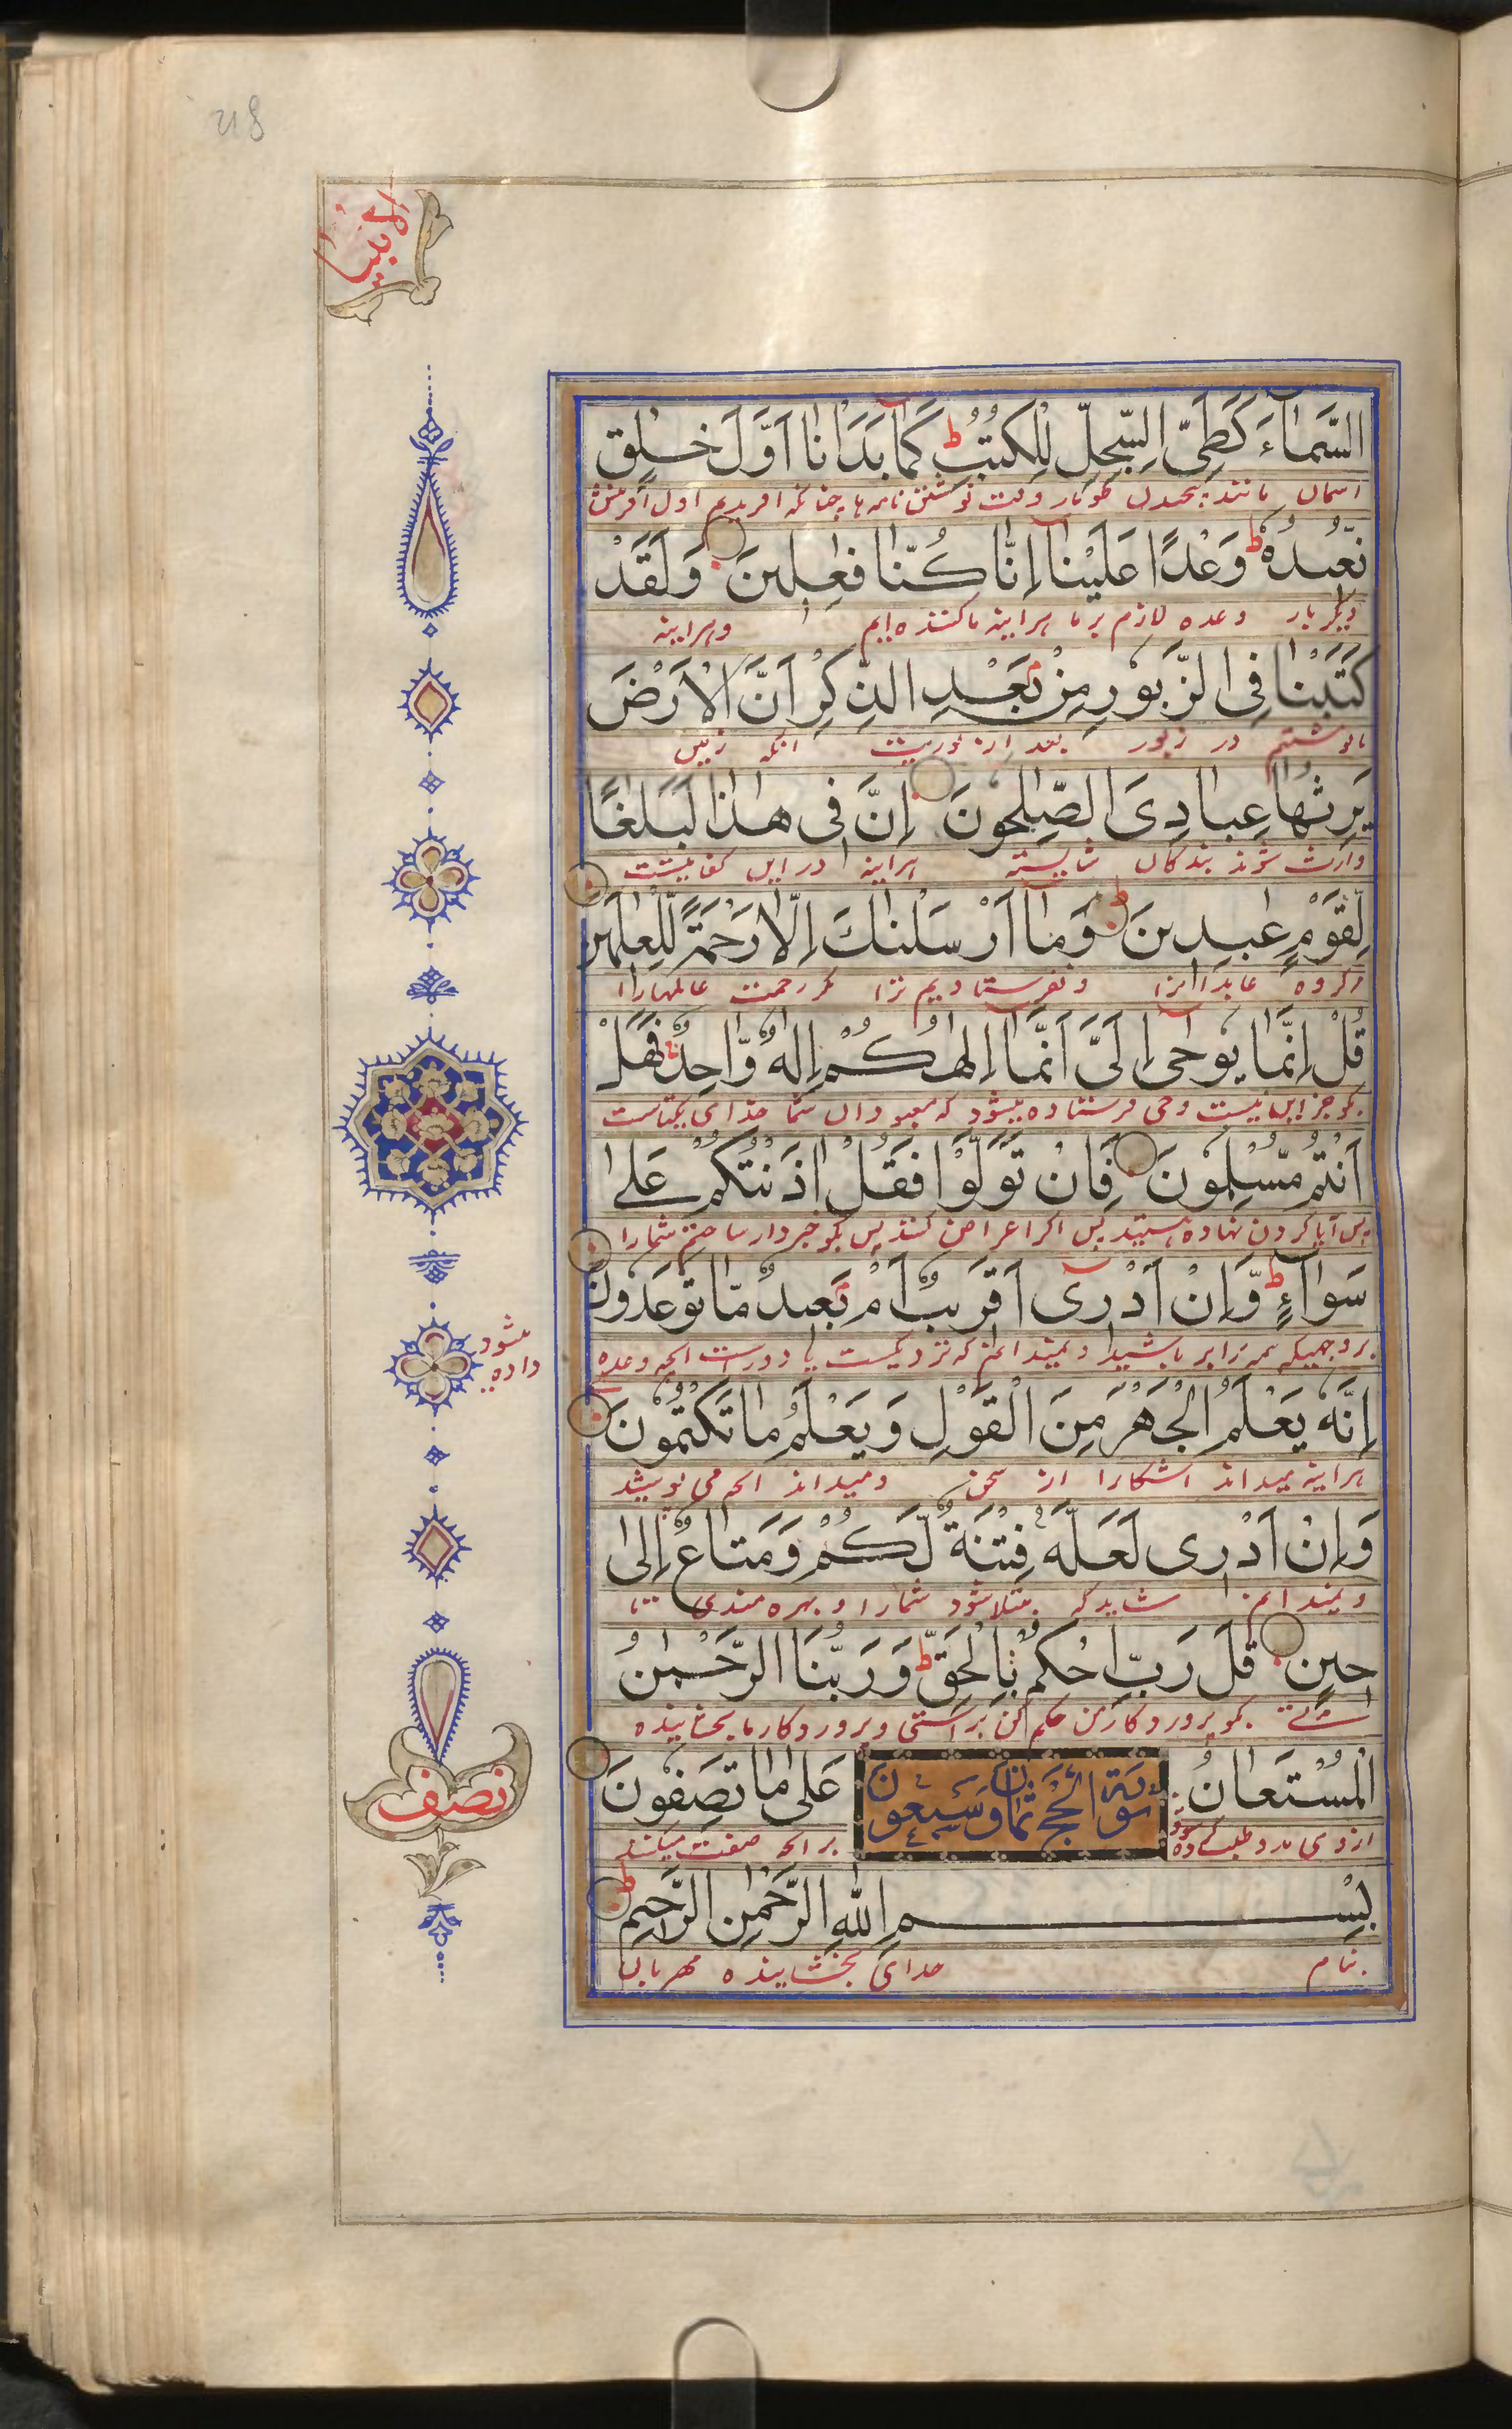 الانبیا
السَّمَاۤءَ كَطَيِّ السِّجِلِّ لِلْكُتُبِ ط كَمَا بَدَاْنَا اَوَّلَ خَلْقٍ
اسمان مانند پیچیدن طومار وقت نوشتن نامه ها چنانکه افریدیم اول افرینش
نُعِيدُهُ ط وَعْدًا عَلَيْنَا اِنَّا كُنَّا فٰعِلِينَ وَلَقَدْ
دیگر بار وعده لازم بر ما هراینه ما کننده ایم وهراینه
كَتَبْنَا فِى الزَّبُورِ مِنْ بَعْدِ الذِّكْرِ اَنَّ الْاَرْضَ
ما نوشتیم در زبور بعد از توریت انکه زمین
يَرِثُهَا عِبَادِىَ الصّٰلِحُونَ اِنَّ فِى هٰذَا لَبَلٰغًا
وارث شوند بندکان شایسته هراینه در این کفایتست
لِّقَوْمٍ عٰبِدِينَ ط وَمَاۤ اَرْسَلْنٰكَ اِلَّا رَحْمَةً لِّلْعٰلَمِين
کروه عابدانرا ونفرستادیم ترا مکر رحمت عالمهارا
قُلْ اِنَّمَا يُوحٰىۤ اِلَىَّ اَنَّمَاۤ اِلٰهُكُمْ اِلٰهٌ وَّاحِدٌ فَهَلْ
بکو جز این نیست وحی فرستاده میشود که معبودان شما خدای یکتاست
اَنْتُمْ مُّسْلِمُونَ فَاِنْ تَوَلَّوْا فَقُلْ اٰذَنْتُكُمْ عَلٰى
پس آیا کردن نهاده هستید پس اکر اعراض کنند پس بکو خبردار ساختم شمارا
سَوَاۤءٍ ط وَّاِنْ اَدْرِىۤ اَقَرِيبٌ اَمْ بَعِيدٌ مَّا تُوعَدُونَ
بروجهیکه همه برابر باشید و نمیدانم که نزدیکست یا دورست انچه وعده
داده میشود
اِنَّهُ يَعْلَمُ الْجَهْرَ مِنَ الْقَوْلِ وَيَعْلَمُ مَا تَكْتُمُونَ
هراینه میداند اشکارا از سخن ومیداند انچه می پوشید
وَاِنْ اَدْرِى لَعَلَّهُ فِتْنَةٌ لَّكُمْ وَمَتَاعٌ اِلٰى
ونمیدانم شاید که مبتلا شود شمارا و بهره مندی تا
حِينٍ قٰلَ رَبِّ احْكُمْ بِالْحَقِّ ط وَرَبُّنَا الرَّحْمٰنُ
مدتی بکو پرورد کار من حکم کن براستی وپروردکار ما بخشاینده
الْمُسْتَعَانُ عَلٰى مَا تَصِفُونَ
سورة الحج ثمان وسبعون
ازوی مدد طلب کرده شود بر انچه صفت میکنید
نصف
بِسْمِ اللهِ الرَّحْمٰنِ الرَّحِيمِ ط
بنام خدای بخشاینده مهربان